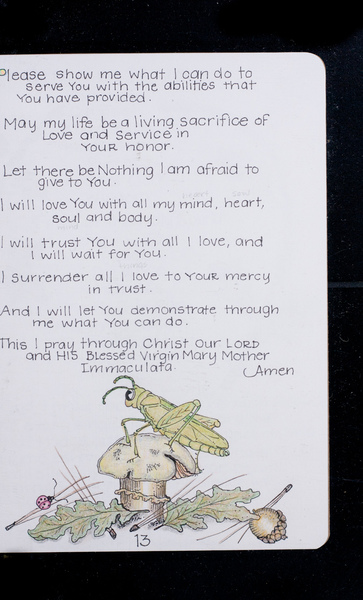 Please show me what I can do to
serve You with the abilities that
You have provided.
May my life be a living sacrifice of
Love and Service in
Your honor.
Let there be Nothing I am afraid to
give to You.
I will love You with all my mind, heart,
soul and body.
I will trust You with all I love, and
I will wait for You.
I surrender all I love to Your mercy
in trust.
And I will let You demonstrate through
me what You can do.
This I pray through Christ Our LORD
and HIS Blessed Virgin Mary Mother
Immaculata.
Amen
13